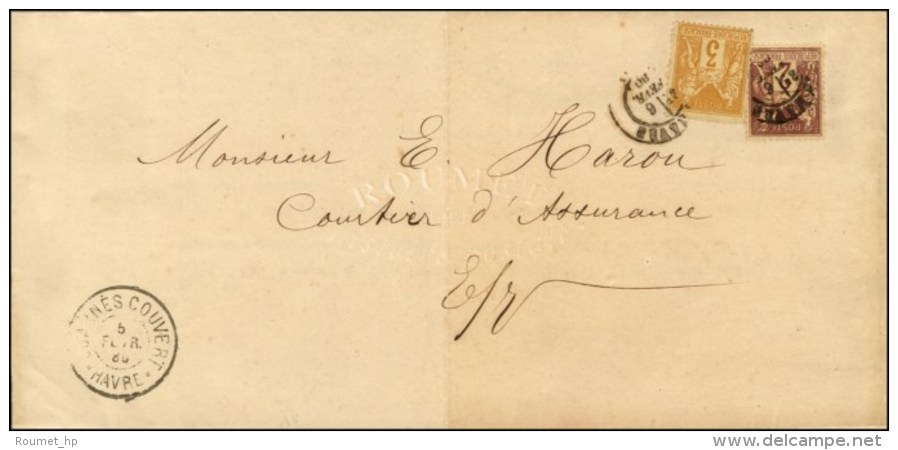 Monsieur E. Harou
Courtier d'Assurance
E/V
COUVERT
5
FEVR.
HAVRE
HAVRE
6
FEVR
3
2
POSTE
ROUMET
Roumet_hp
delcampe.net